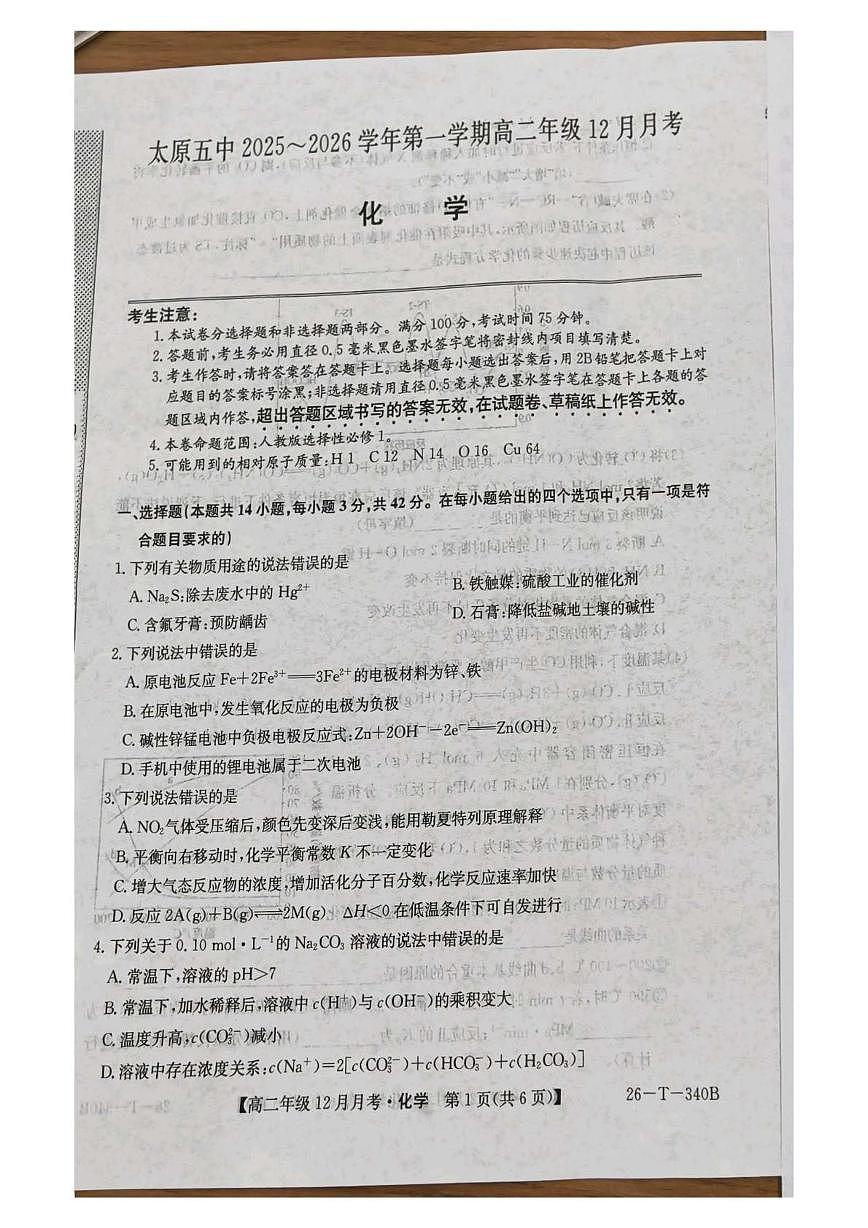 太原五中2025～2026学年第一学期高二年级12月月考
化 学
考生注意：
1.本试卷分选择题和非选择题两部分。满分100分，考试时间75分钟。
2.答题前，考生务必用直径0.5毫米黑色墨水签字笔将密封线内项目填写清楚。
3.考生作答时，请将答案答在答题卡上。选择题每小题选出答案后，用2B铅笔把答题卡上对
应题目的答案标号涂黑；非选择题请用直径0.5毫米黑色墨水签字笔在答题卡上各题的答
题区域内作答，超出答题区域书写的答案无效，在试题卷、草稿纸上作答无效。
4.本卷命题范围：人教版选择性必修1。
5.可能用到的相对原子质量：H 1 C 12 N 14 O 16 Cu 64
一、选择题(本题共14小题，每小题3分，共42分。在每小题给出的四个选项中，只有一项是符
合题目要求的)
1.下列有关物质用途的说法错误的是
A. Na₂S：除去废水中的Hg²⁺ B.铁触媒：硫酸工业的催化剂
C.含氟牙膏：预防龋齿 D.石膏：降低盐碱地土壤的碱性
2.下列说法中错误的是
A.原电池反应Fe+2Fe³⁺══3Fe²⁺的电极材料为锌、铁
B.在原电池中，发生氧化反应的电极为负极
C.碱性锌锰电池中负极电极反应式：Zn+2OH⁻－2e⁻══Zn(OH)₂
D.手机中使用的锂电池属于二次电池
3.下列说法错误的是
A. NO₂气体受压缩后，颜色先变深后变浅，能用勒夏特列原理解释
B.平衡向右移动时，化学平衡常数K不一定变化
C.增大气态反应物的浓度，增加活化分子百分数，化学反应速率加快
D.反应2A(g)+B(g)⇌2M(g) ΔH<0在低温条件下可自发进行
4.下列关于0.10 mol·L⁻¹的Na₂CO₃溶液的说法中错误的是
A.常温下，溶液的pH>7
B.常温下，加水稀释后，溶液中c(H⁺)与c(OH⁻)的乘积变大
C.温度升高，c(CO₃²⁻)减小
D.溶液中存在浓度关系：c(Na⁺)=2[c(CO₃²⁻)+c(HCO₃⁻)+c(H₂CO₃)]
【高二年级12月月考·化学 第1页(共6页)】 26－T－340B